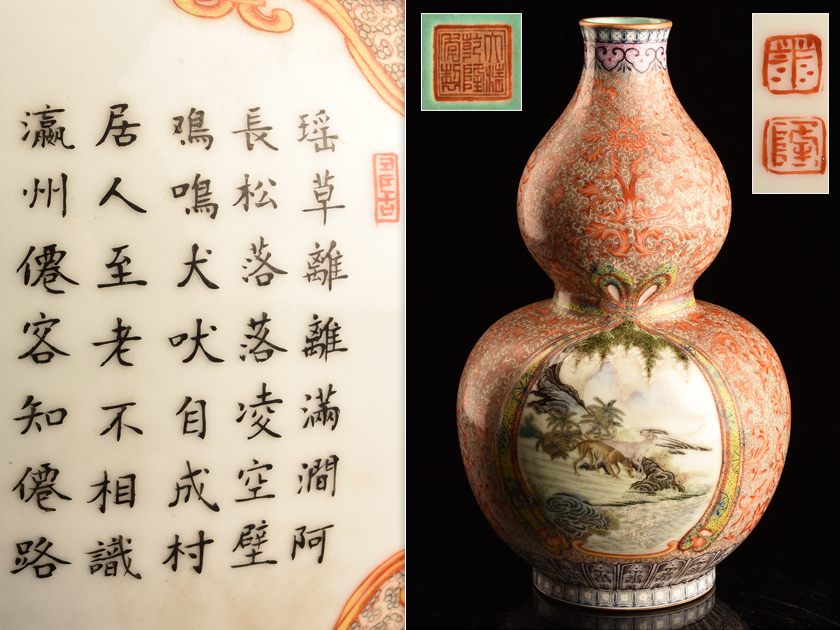 瑶草離離滿澗阿
長松落落凌空壁
鳴犬吠自成村
居人至老不相識
瀛州僊客知僊路
大清
乾隆
年製
隆